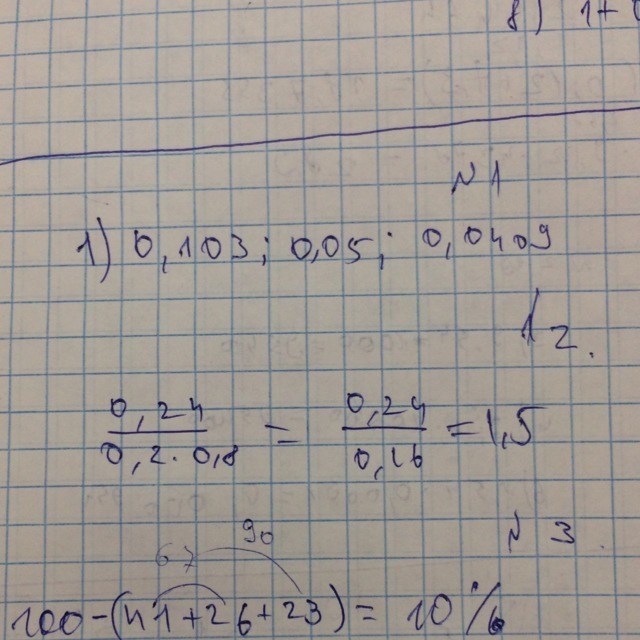 8) 1+
№ 1
1) 0,103; 0,05; 0,0409
№ 2.
0,24 / 0,2 · 0,8 = 0,24 / 0,16 = 1,5
№ 3.
67 90
100-(41+26+23) = 10%